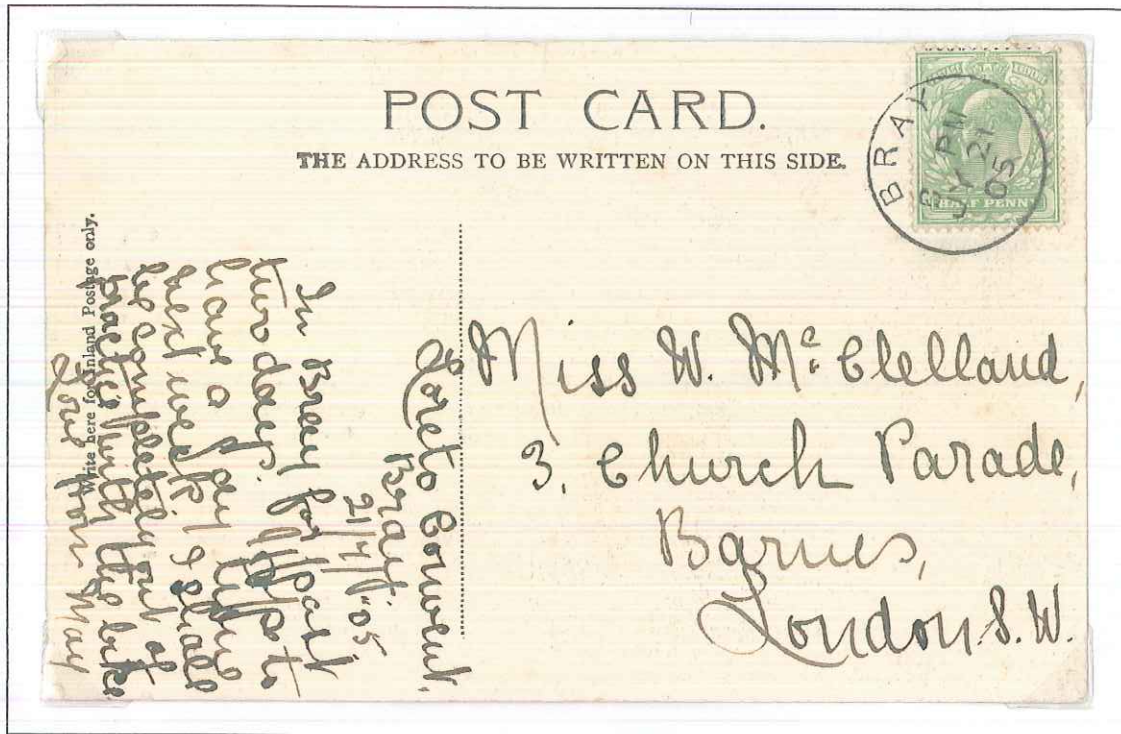 POST CARD.
THE ADDRESS TO BE WRITTEN ON THIS SIDE.
BRAY
PM
JY 21
05
HALF PENNY
Write here for Inland Postage only.
Loreto Convent,
Bray.
21/7/'05
In Bray for about
two days. Hope to
have a jay time
next week. I shall
be completely out of
practice with the bike
Love from May
Miss W. McClelland,
3, Church Parade,
Barnes,
London S.W.